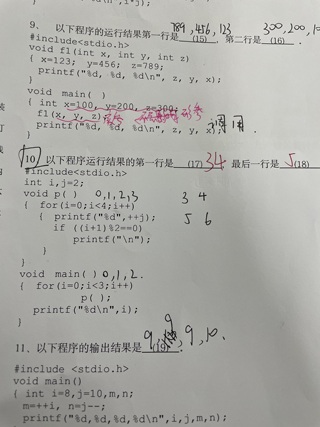 789, 456, 123    300, 200, 1
9、 以下程序的运行结果第一行是 (15) ，第二行是 (16) 。
#include<stdio.h>
void f1(int x, int y, int z)
{ x=123; y=456; z=789;
printf("%d, %d, %d\n", z, y, x);
}
void main( )
{ int x=100, y=200, z=300;
f1(x, y, z);
printf("%d, %d, %d\n", z, y, x); 调用.
}
10、以下程序运行结果的第一行是 (17) 34 最后一行是 5 (18)
#include<stdio.h>
int i,j=2;
void p( ) 0,1,2,3    3 4
{ for(i=0;i<4;i++)
{ printf("%d",++j);    5 6
if ((i+1)%2==0)
printf("\n");
}
}
void main( ) 0,1,2.
{ for(i=0;i<3;i++)
p( );
printf("%d\n",i);
}
9
11、以下程序的输出结果是 9, (19), 9, 10.
#include <stdio.h>
void main()
{ int i=8,j=10,m,n;
m=++i, n=j--;
printf("%d,%d,%d,%d\n",i,j,m,n);